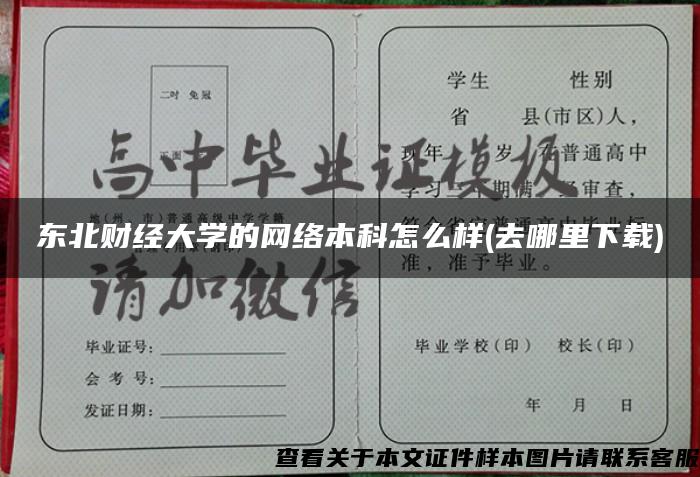 二吋 免冠
正面
高中毕业证模板
地(州、市)普通高级中学学籍
东北财经大学的网络本科怎么样(去哪里下载)
请加微信
毕业证号:
会考号:
发证日期:
学生 性别
省 县(市区)人,
现年 岁,在普通高中
学习 期满 审查,
准,准予毕业。
毕业学校(印) 校长(印)
年 月 日
查看关于本文证件样本图片请联系客服